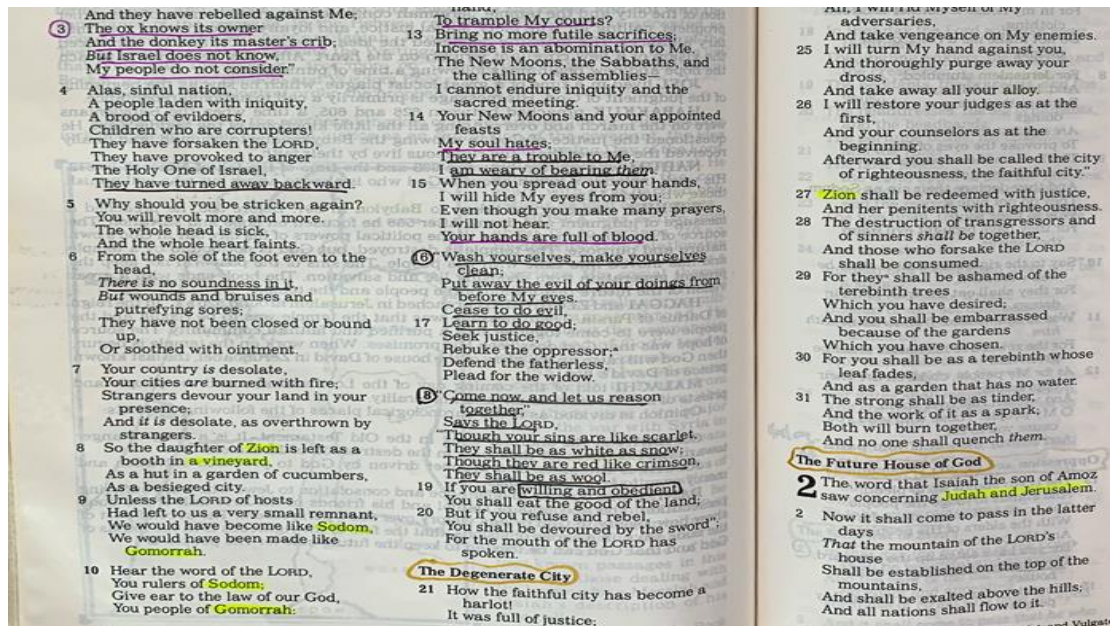 And they have rebelled against Me;
3 The ox knows its owner
And the donkey its master's crib;
But Israel does not know,
My people do not consider."
4 Alas, sinful nation,
A people laden with iniquity,
A brood of evildoers,
Children who are corrupters!
They have forsaken the LORD,
They have provoked to anger
The Holy One of Israel,
They have turned away backward.
5 Why should you be stricken again?
You will revolt more and more.
The whole head is sick,
And the whole heart faints.
6 From the sole of the foot even to the
head,
There is no soundness in it,
But wounds and bruises and
putrefying sores;
They have not been closed or bound
up,
Or soothed with ointment.
7 Your country is desolate,
Your cities are burned with fire;
Strangers devour your land in your
presence;
And it is desolate, as overthrown by
strangers.
8 So the daughter of Zion is left as a
booth in a vineyard,
As a hut in a garden of cucumbers,
As a besieged city.
9 Unless the LORD of hosts
Had left to us a very small remnant,
We would have become like Sodom,
We would have been made like
Gomorrah.
10 Hear the word of the LORD,
You rulers of Sodom;
Give ear to the law of our God,
You people of Gomorrah:
hand,
To trample My courts?
13 Bring no more futile sacrifices;
Incense is an abomination to Me.
The New Moons, the Sabbaths, and
the calling of assemblies—
I cannot endure iniquity and the
sacred meeting.
14 Your New Moons and your appointed
feasts
My soul hates;
They are a trouble to Me,
I am weary of bearing them.
15 When you spread out your hands,
I will hide My eyes from you;
Even though you make many prayers,
I will not hear.
Your hands are full of blood.
16 "Wash yourselves, make yourselves
clean;
Put away the evil of your doings from
before My eyes.
Cease to do evil,
17 Learn to do good;
Seek justice,
Rebuke the oppressor;a
Defend the fatherless,
Plead for the widow.
18 "Come now, and let us reason
together,"
Says the LORD,
"Though your sins are like scarlet,
They shall be as white as snow;
Though they are red like crimson,
They shall be as wool.
19 If you are willing and obedient,
You shall eat the good of the land;
20 But if you refuse and rebel,
You shall be devoured by the sword";
For the mouth of the LORD has
spoken.
The Degenerate City
21 How the faithful city has become a
harlot!
It was full of justice;
Ah, I will rid Myself of My
adversaries,
And take vengeance on My enemies.
25 I will turn My hand against you,
And thoroughly purge away your
dross,
And take away all your alloy.
26 I will restore your judges as at the
first,
And your counselors as at the
beginning.
Afterward you shall be called the city
of righteousness, the faithful city."
27 Zion shall be redeemed with justice,
And her penitents with righteousness.
28 The destruction of transgressors and
of sinners shall be together,
And those who forsake the LORD
shall be consumed.
29 For theya shall be ashamed of the
terebinth trees
Which you have desired;
And you shall be embarrassed
because of the gardens
Which you have chosen.
30 For you shall be as a terebinth whose
leaf fades,
And as a garden that has no water.
31 The strong shall be as tinder,
And the work of it as a spark;
Both will burn together,
And no one shall quench them.
The Future House of God
2 The word that Isaiah the son of Amoz
saw concerning Judah and Jerusalem.
2 Now it shall come to pass in the latter
days
That the mountain of the LORD's
house
Shall be established on the top of the
mountains,
And shall be exalted above the hills;
And all nations shall flow to it.
and Vulgate